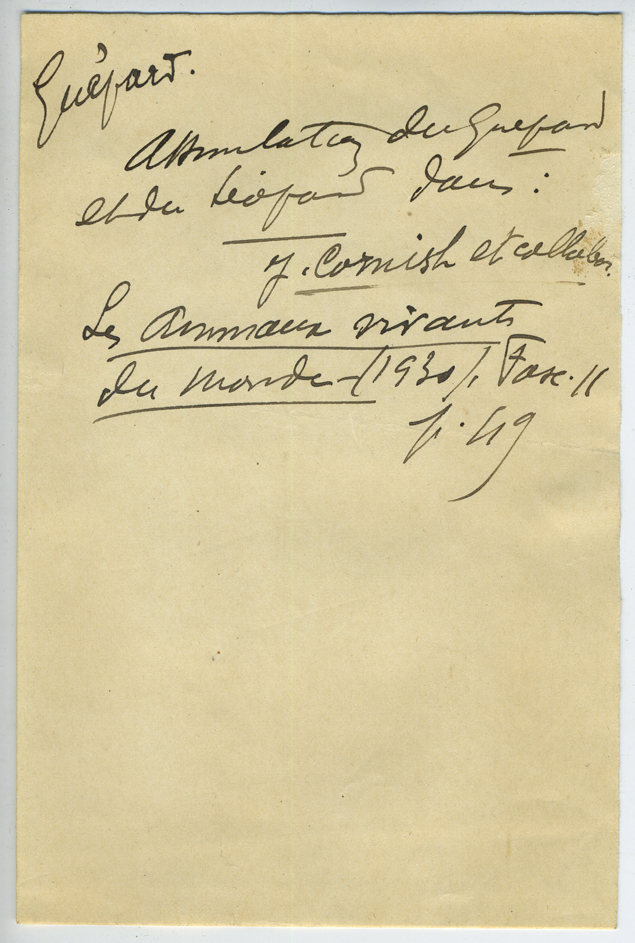 Guépard.
Assimilation du Guépard
et du Léopard dans :
J. Cornish et collabor.
Les Animaux vivants
du monde (1930), Fasc. 11
p. 49